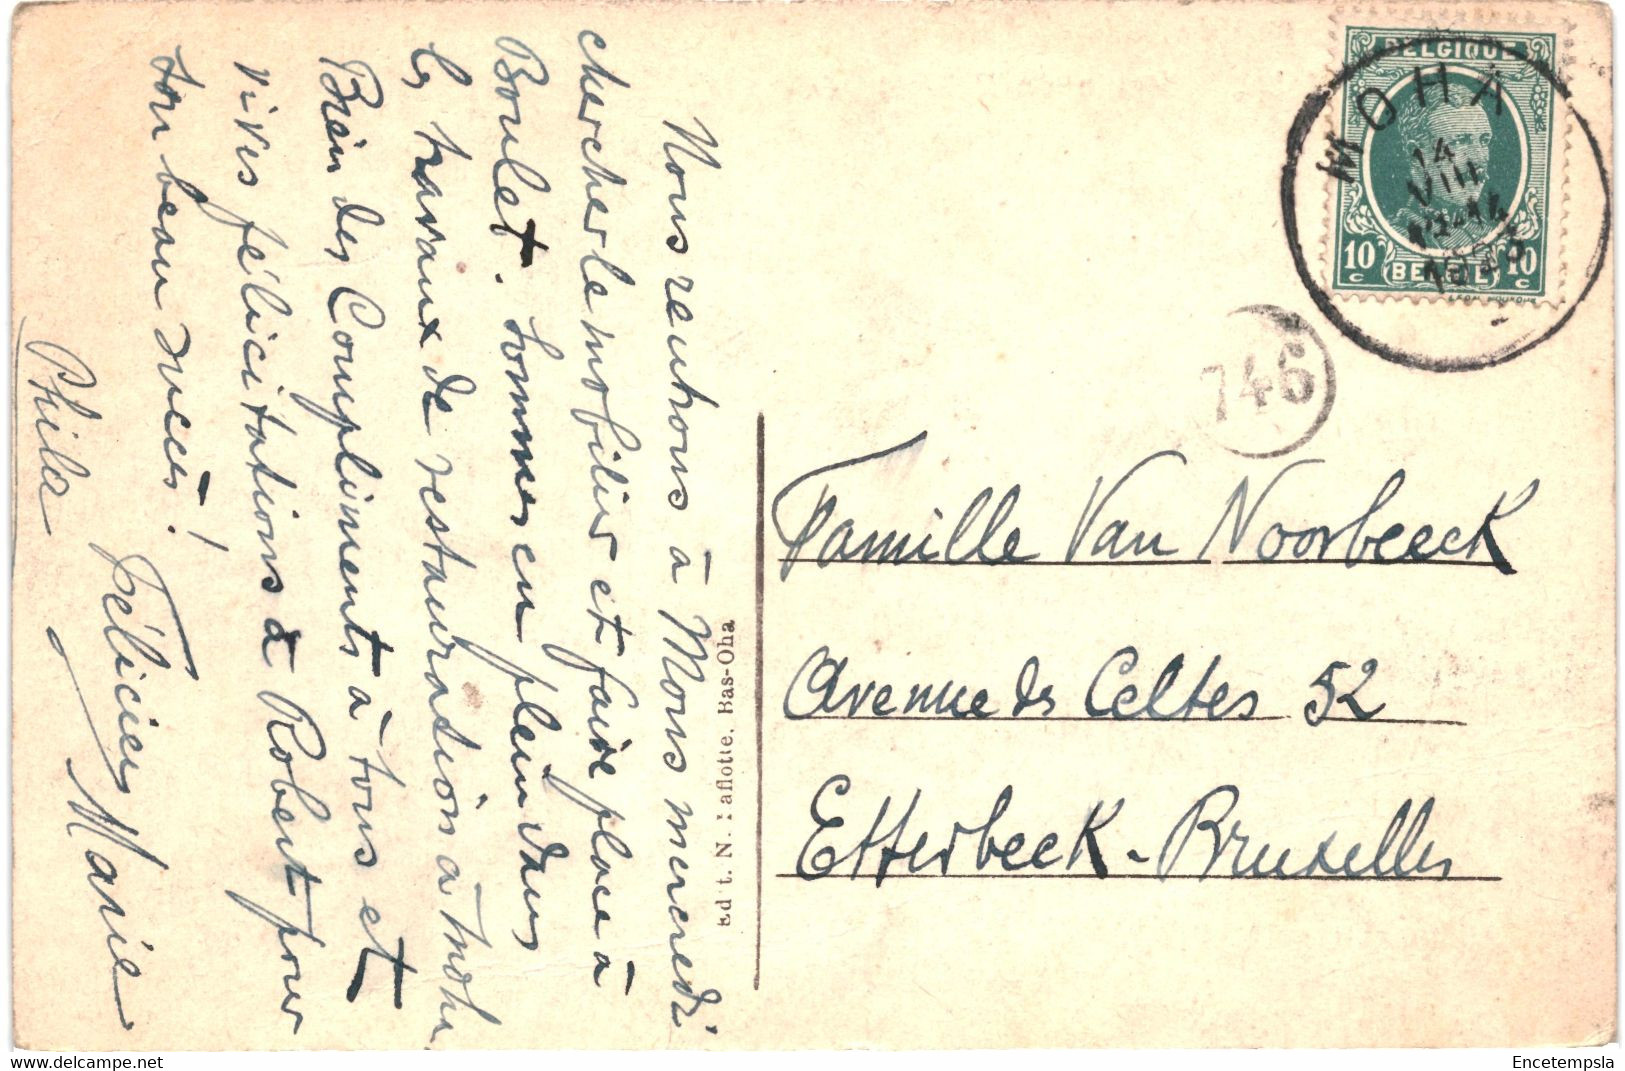 Nous rentrons à Mons mercredi
chercher le mobilier et faire place à
Boulet. Sommes en plein dans
les travaux de restauration à Moha
Bien des Compliments à tous et
vives félicitations à Robert pour
son beau succès!
Félicien Marie
Phila
Edit. N. Laflotte, Bas-Oha
BELGIQUE
10 c BELGIE 10 c
MOHA
14
VIII
12-14
746
Famille Van Noorbeeck
Avenue des Celtes 52
Etterbeek-Bruxelles
Encetempsla